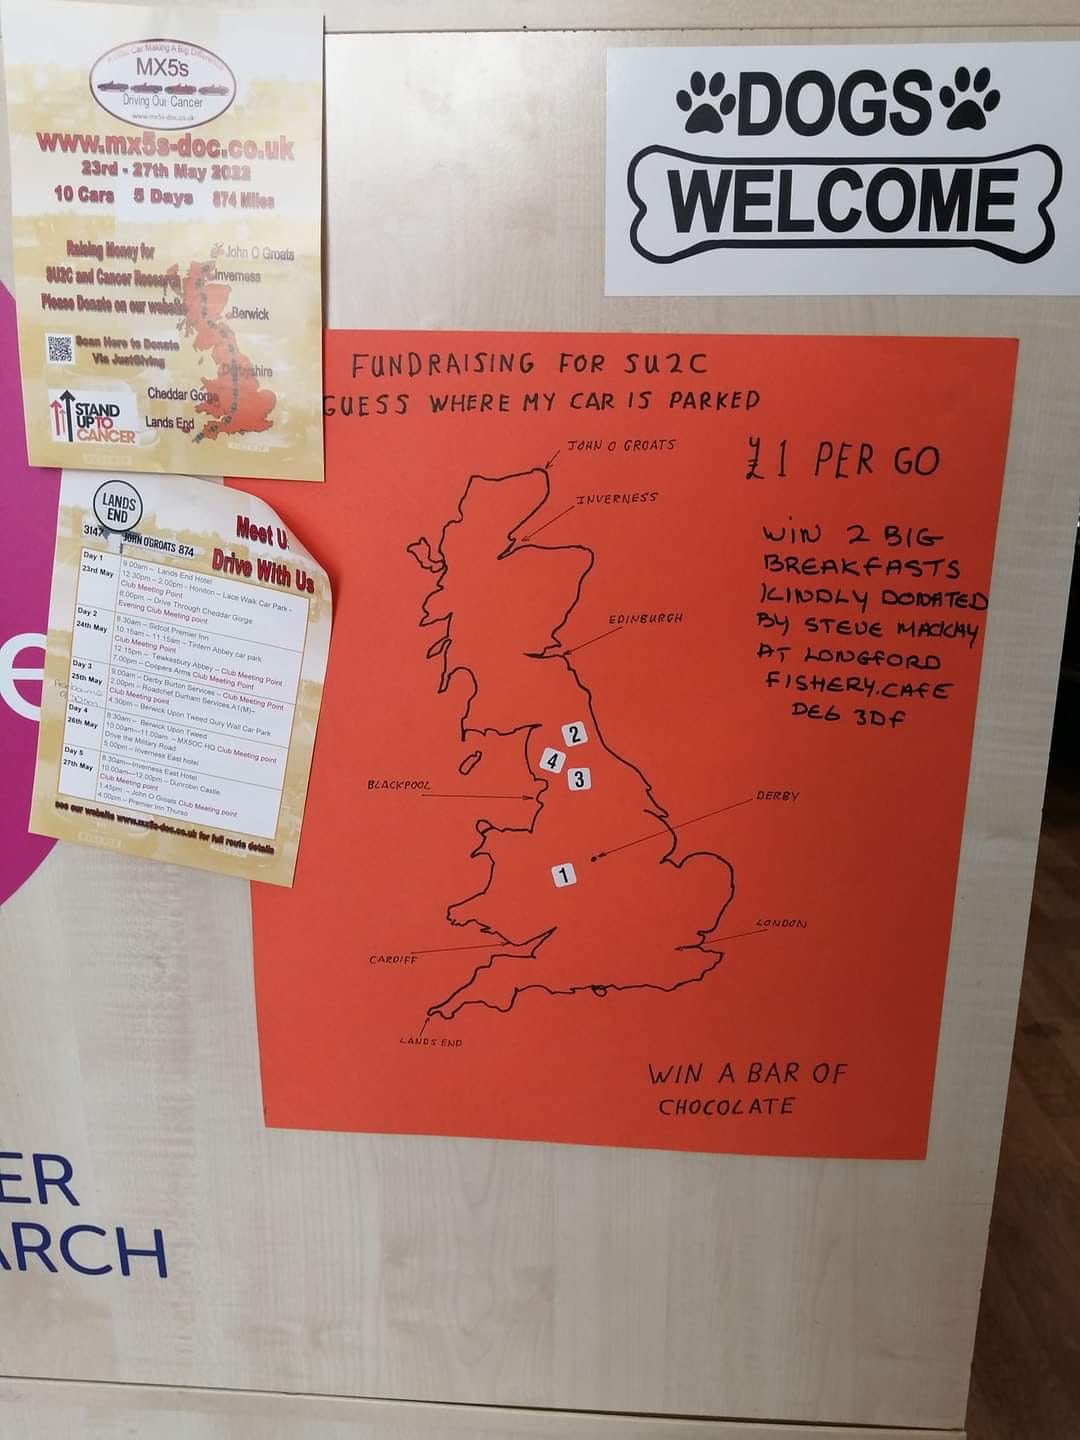 A Little Car Making A Big Difference
MX5's
Driving Out Cancer
www.mx5s-doc.co.uk
www.mx5s-doc.co.uk
23rd - 27th May 2022
10 Cars 5 Days 874 Miles
Raising Money for
SU2C and Cancer Research
Please Donate on our website
Scan Here to Donate
Via JustGiving
John O Groats
Inverness
Berwick
Derbyshire
Cheddar Gorge
Lands End
STAND
UP TO
CANCER
DOGS
WELCOME
LANDS
END
3147
JOHN O'GROATS 874
Meet U
Drive With Us
Day 1
23rd May
9.00am – Lands End Hotel
12.30pm – 2.00pm - Honiton – Lace Walk Car Park -
Club Meeting Point
6.00pm – Drive Through Cheddar Gorge
Evening Club Meeting point
Day 2
24th May
8.30am – Sidcot Premier Inn
10.15am – 11.15am – Tintern Abbey car park
Club Meeting Point
12:15pm – Tewkesbury Abbey – Club Meeting Point
7.00pm – Coopers Arms Club Meeting Point
Day 3
25th May
9.00am – Derby Burton Services – Club Meeting Point
2.00pm – Roadchef Durham Services A1(M)–
Club Meeting point
4.30pm – Berwick Upon Tweed Qury Wall Car Park
Day 4
26th May
8.30am – Berwick Upon Tweed
10.00am—11.00am – MX5OC HQ Club Meeting point
Drive the Military Road
5.00pm – Inverness East hotel
Day 5
27th May
8.30am—Inverness East Hotel
10.00am—12.00pm – Dunrobin Castle
Club Meeting point
1.45pm – John O Groats Club Meeting point
4.00pm – Premier Inn Thurso
see our website www.mx5s-doc.co.uk for full route details
FUNDRAISING FOR SU2C
GUESS WHERE MY CAR IS PARKED
£1 PER GO
WIN 2 BIG
BREAKFASTS
KINDLY DONATED
BY STEVE MACKAY
AT LONGFORD
FISHERY.CAFE
DE6 3DF
JOHN O GROATS
INVERNESS
EDINBURGH
2
4
3
BLACKPOOL
DERBY
1
LONDON
CARDIFF
LANDS END
WIN A BAR OF
CHOCOLATE
e
ER
ARCH